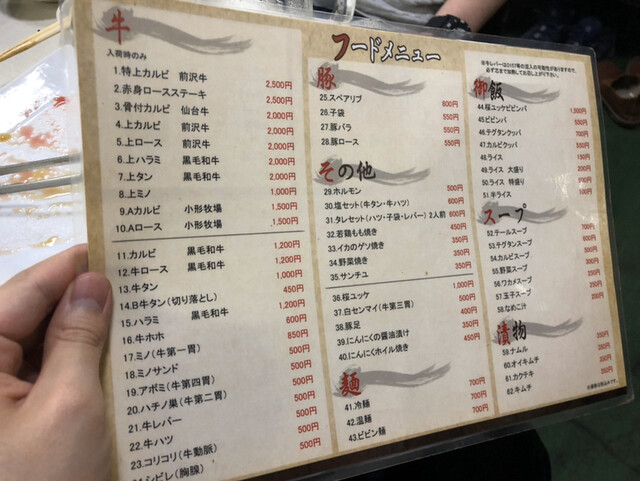 フードメニュー
牛
入荷時のみ
1.特上カルビ 前沢牛 2,500円
2.赤身ロースステーキ 2,500円
3.骨付カルビ 仙台牛 2,000円
4.上カルビ 前沢牛 2,000円
5.上ロース 前沢牛 2,000円
6.上ハラミ 黒毛和牛 2,000円
7.上タン 黒毛和牛 2,000円
8.上ミノ 1,000円
9.Aカルビ 小形牧場 1,500円
10.Aロース 小形牧場 1,500円
11.カルビ 黒毛和牛 1,200円
12.牛ロース 黒毛和牛 1,200円
13.牛タン 1,000円
14.B牛タン(切り落とし) 450円
15.ハラミ 黒毛和牛 1,200円
16.牛ホホ 600円
17.ミノ(牛第一胃) 850円
18.ミノサンド 850円
19.アボミ(牛第四胃) 500円
20.ハチノ巣(牛第二胃) 500円
21.牛レバー 500円
22.牛ハツ 500円
23.コリコリ(牛動脈) 500円
24.シビレ(胸腺)
豚
25.スペアリブ 600円
26.子袋 550円
27.豚バラ 550円
28.豚ロース 550円
その他
29.ホルモン 500円
30.塩セット(牛タン・牛ハツ) 600円
31.タレセット(ハツ・子袋・レバー)2人前 600円
32.若鶏もも焼き 450円
33.イカのゲソ焼き 350円
34.野菜焼き 350円
35.サンチュ 350円
36.桜ユッケ 1,500円
37.白センマイ(牛第三胃) 400円
38.豚足 350円
39.にんにくの醤油漬け 450円
40.にんにくホイル焼き 450円
麺
41.冷麺 700円
42.温麺 700円
43.ビビン麺 700円
※牛レバーはO157等の混入の可能性がありますので、
必ず芯まで加熱してお召し上がり下さい。
御飯
44.桜ユッケビビンバ 1,500円
45.ビビンバ 550円
46.テグタンクッパ 700円
47.カルビクッパ
48.ライス
49.ライス 大盛り
50.ライス 特盛り
51.半ライス
スープ
52.テールスープ
53.テグタンスープ
54.カルビスープ
55.野菜スープ
56.ワカメスープ
57.玉子スープ
58.なめこ汁
漬物
59.ナムル
60.オイキムチ
61.カクテキ
62.キムチ